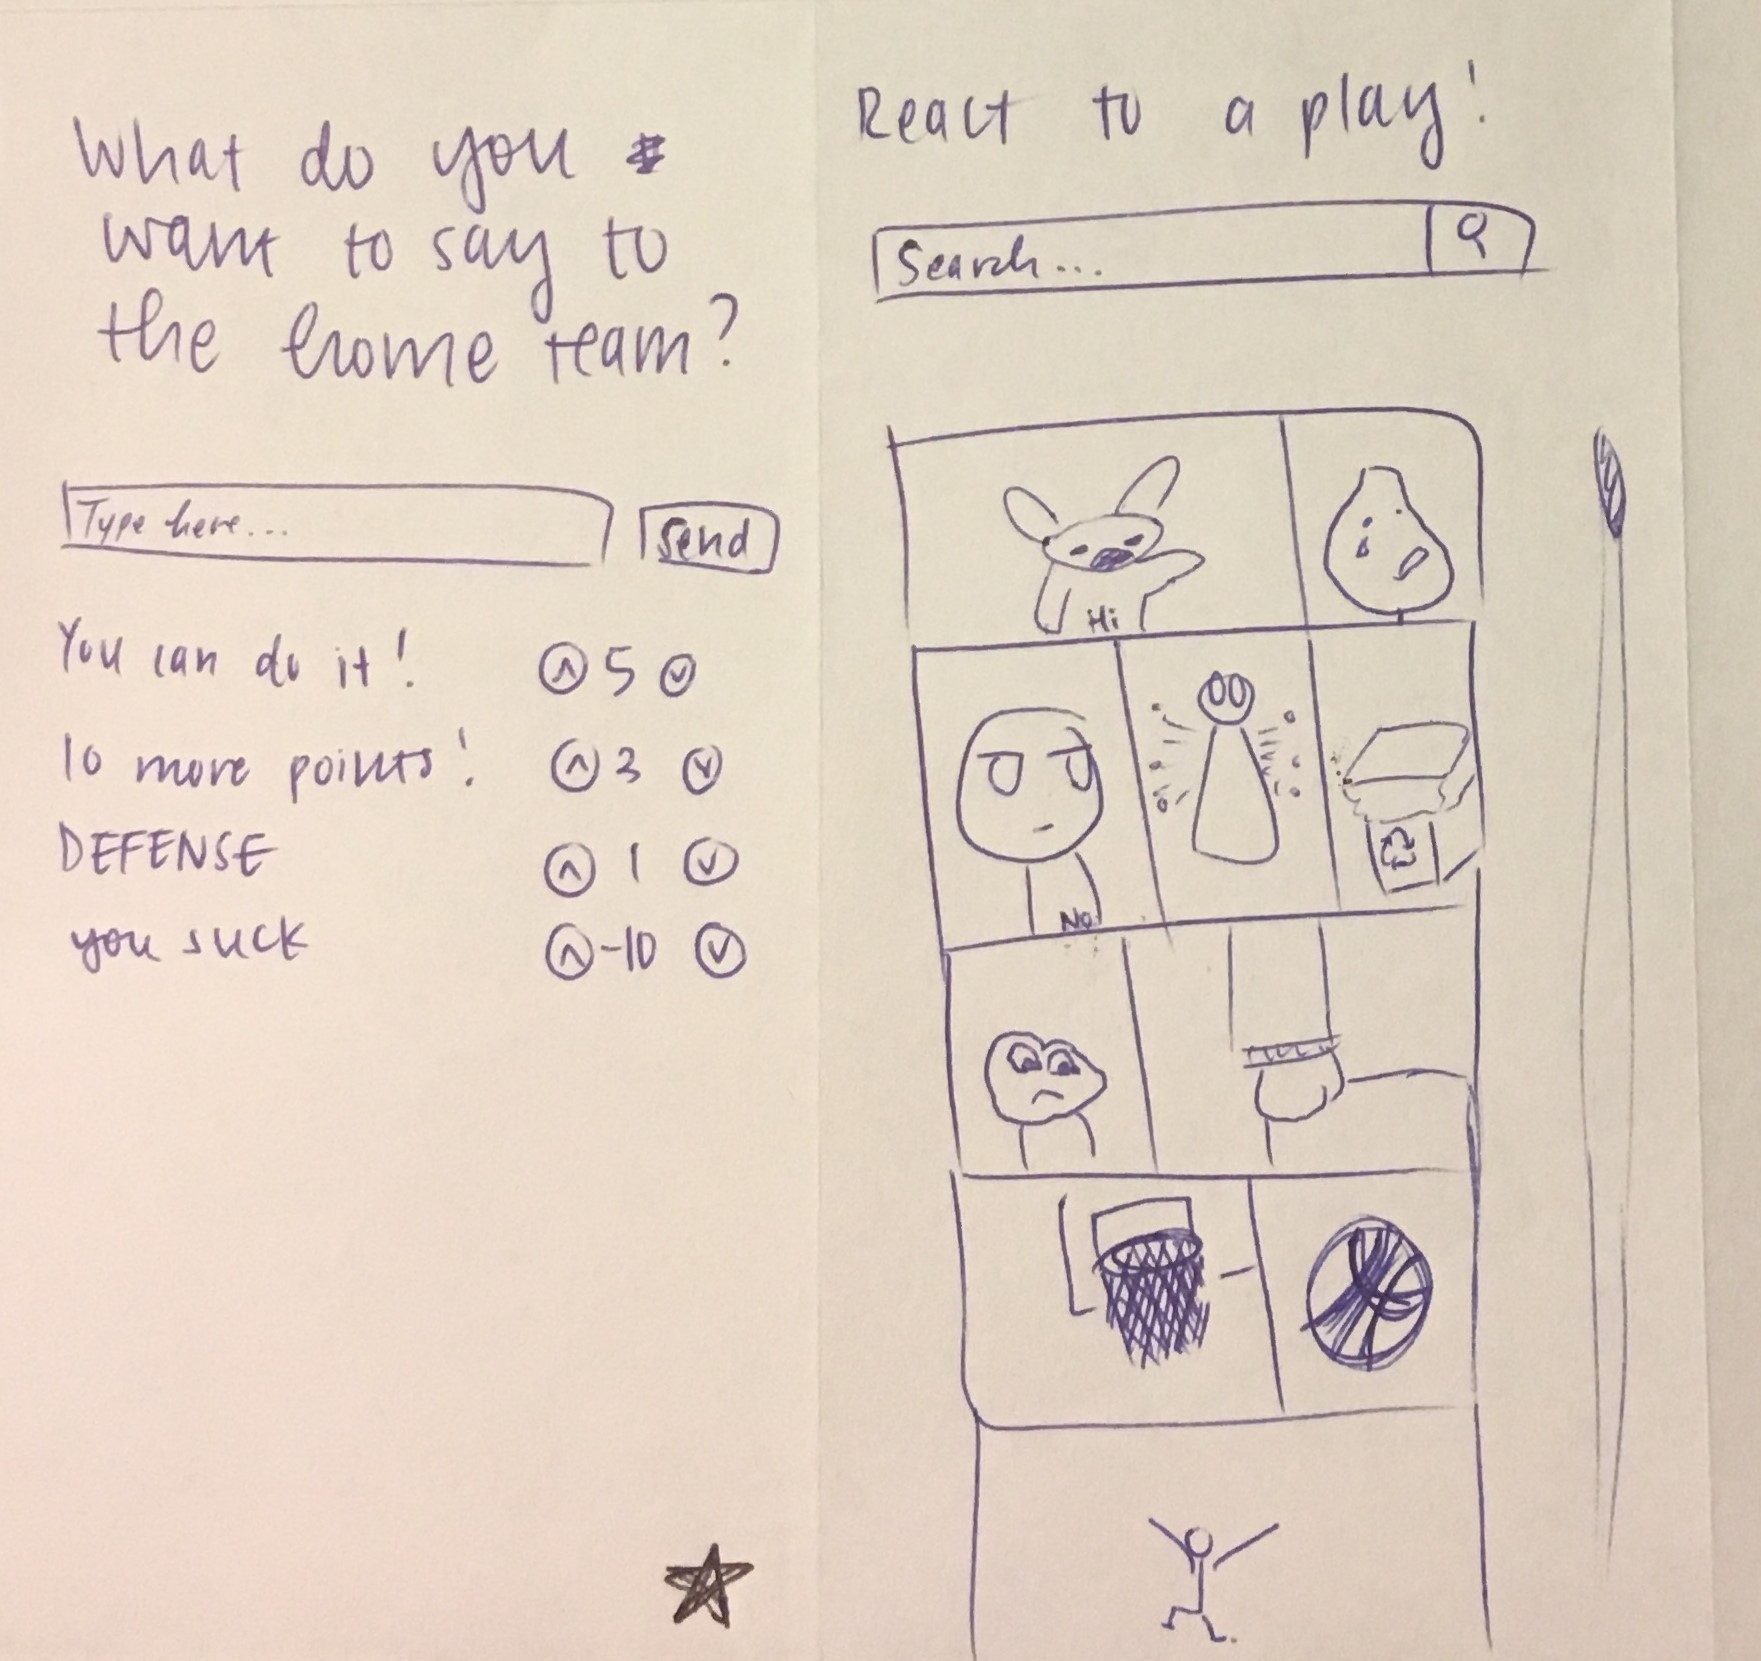 What do you
want to say to
the home team?
Type here...
Send
You can do it!
5
10 more points!
3
DEFENSE
1
you suck
-10
React to a play!
Search...
Hi
No